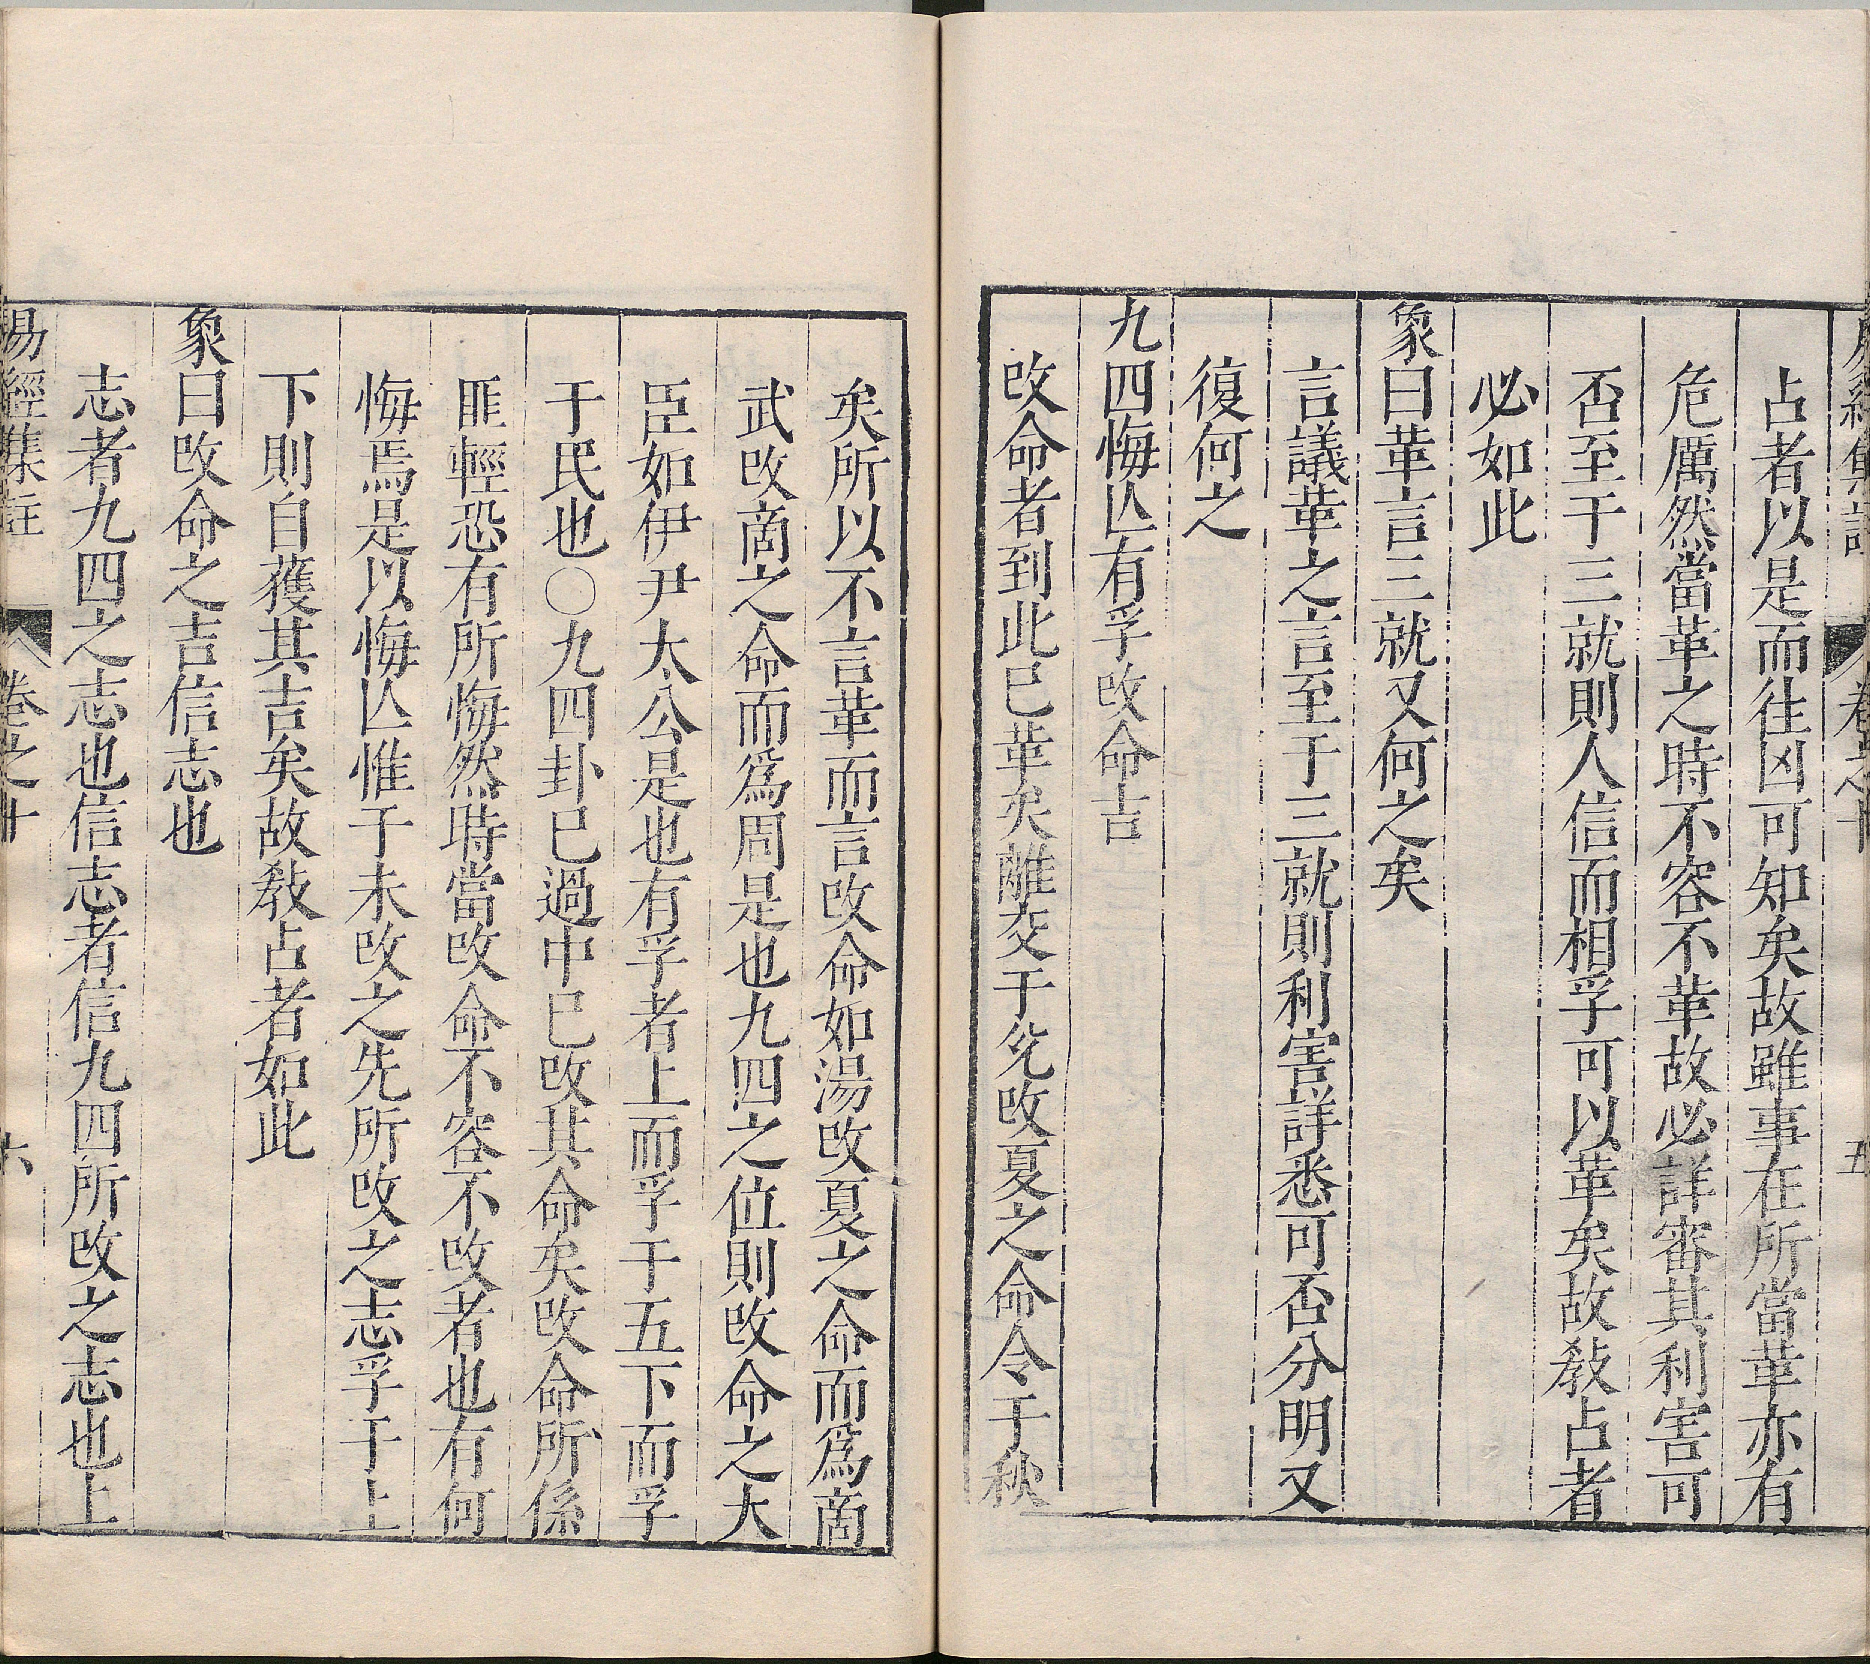 易經集註 卷之十 五
占者以是而往凶可知矣故雖事在所當革亦有
危厲然當革之時不容不革故必詳審其利害可
否至于三就則人信而相孚可以革矣故敎占者
必如此
象曰革言三就又何之矣
言議革之言至于三就則利害詳悉可否分明又
復何之
九四悔亾有孚改命吉
改命者到此已革矣離交于兊改夏之命令于秋
矣所以不言革而言改命如湯改夏之命而爲商
武改商之命而爲周是也九四之位則改命之大
臣如伊尹太公是也有孚者上而孚于五下而孚
于民也○九四卦已過中已改其命矣改命所係
匪輕恐有所悔然時當改命不容不改者也有何
悔焉是以悔亾惟于未改之先所改之志孚于上
下則自獲其吉矣故敎占者如此
象曰改命之吉信志也
志者九四之志也信志者信九四所改之志也上
易經集註 卷之十 六